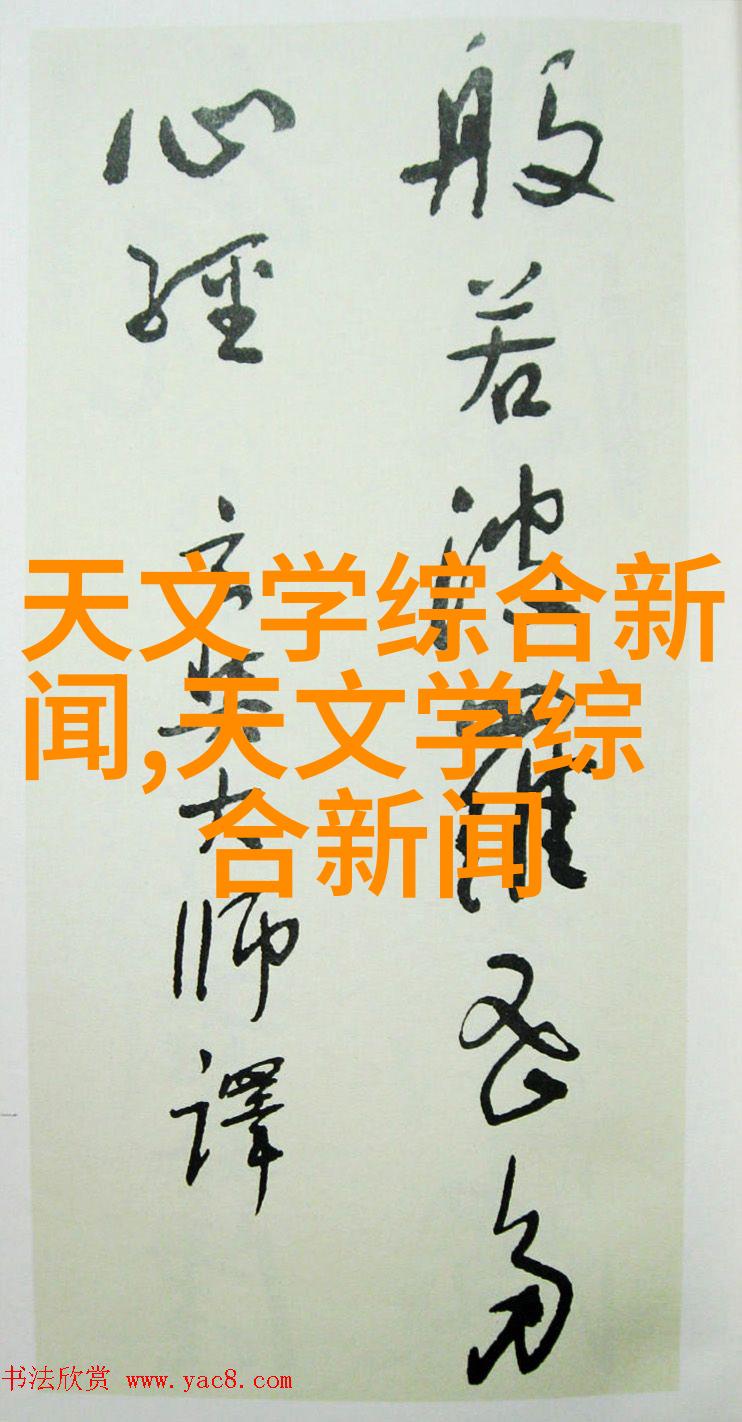 般若波羅蜜多
心經 玄奘大師譯
天文学综合新
闻,天文学综
合新闻
书法欣赏 www.yac8.com